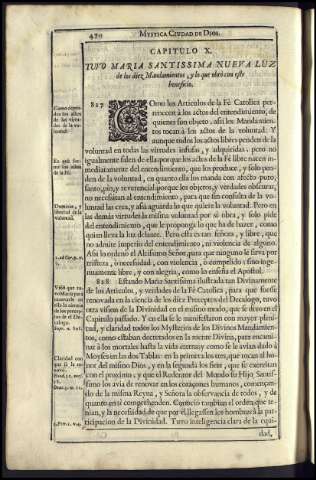 420
MYSTICA CIUDAD DE DIOS.
CAPITULO X.
TUVO MARIA SANTISSIMA NUEVA LUZ
de los diez Mandamientos, y lo que obrò con este
beneficio.
827
COmo los Articulos de la Fè Catolica per-
tenecen à los actos del entendimiento, de
quienes son objeto, assi los Mandamien-
tos tocan à los actos de la voluntad. Y
aunque todos los actos libres penden de la
voluntad en todas las virtudes infusas, y adquiridas; pero no
igualmente salen de ella; porque los actos de la Fè libre nacen in-
mediatamente del entendimiento, que los produce, y solo pen-
den de la voluntad, en quanto ella los manda con afecto puro,
santo, pio, y reverencial; porque los objetos, y verdades obscuras,
no necessitan al entendimiento, para que sin consulta de la vo-
luntad las crea, y assi aguarda lo que quiere la voluntad. Pero en
las demàs virtudes la misma voluntad por sì obra, y solo pide
del entendimiento, que le proponga lo que ha de hazer, como
quien lleva la luz delante. Pero ella es tan señora, y libre, que
no admite imperio del entendimiento, ni violencia de alguno.
Assi lo ordenò el Altissimo Señor, para que ninguno le sirva por
tristeza, ò necessidad, con violencia, ò compelido, sino inge-
nuamente libre, y con alegria, como lo enseña el Apostol.
828 Estando Maria Santissima ilustrada tan Divinamente
de los Articulos, y verdades de la Fè Catolica, para que fuesse
renovada en la ciencia de los diez Preceptos del Decalogo, tuvo
otra vision de la Divinidad en el mismo modo, que se dixo en el
Capitulo passado. Y en ella se le manifestaron con mayor pleni-
tud, y claridad todos los Mysterios de los Divinos Mandamien-
tos, como estaban decretados en la mente Divina, para encami-
nar à los mortales hasta la vida eterna; y como se le avian dado à
Moyses en las dos Tablas: en la primera los tres, que tocan al ho-
nor del mismo Dios, y en la segunda los siete, que se exercitan
con el proximo; y que el Redentor del Mundo su Hijo Santissi-
mo los avia de renovar en los corazones humanos, començan-
do de la misma Reyna, y Señora la observancia de todos, y de
quanto en sì comprehenden. Conociò tambien el orden que te-
nian, y la necessidad, de que por èl llegassen los hombres à la par-
ticipacion de la Divinidad. Tuvo inteligencia clara de la equi-
dad,
Como depen-
den los actos
de las virtu-
des de la vo-
luntad.
Dominio, y
libertad de la
voluntad.